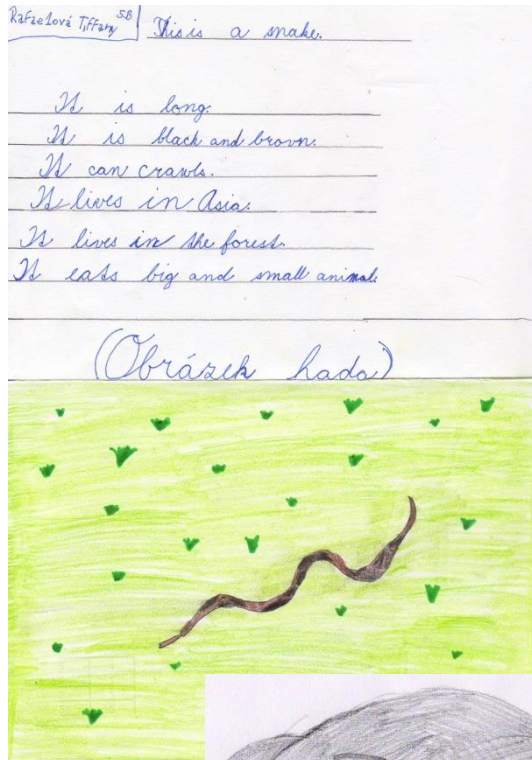 Rafaelová Tiffany 5.B
This is a snake.
It is long.
It is black and brown.
It can crawls.
It lives in Asia.
It lives in the forest.
It eats big and small animal.
(Obrázek hada)